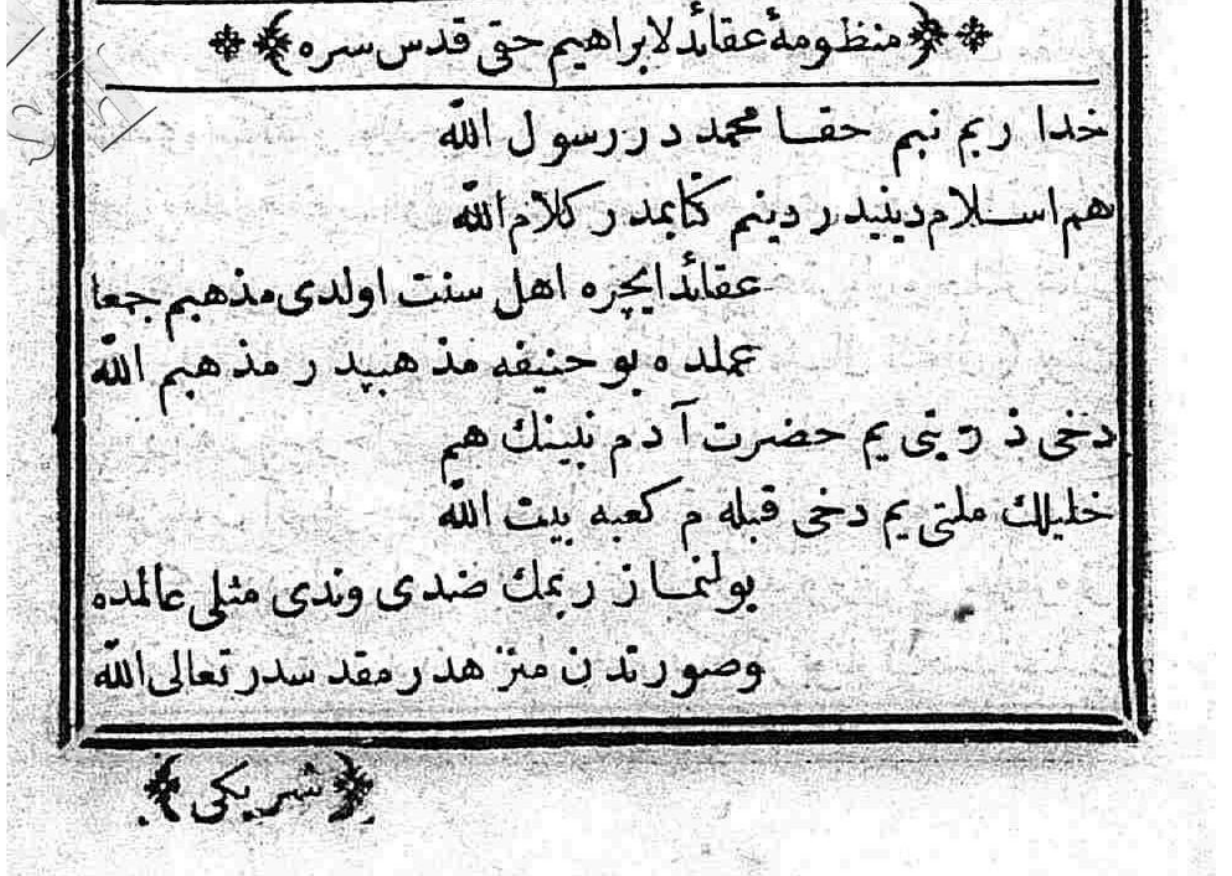 ﴿منظومهٔ عقائد لابراهیم حقی قدس سره﴾
خدا ربم نبم حقا محمد در رسول الله
هم اسلام دینیدر دینم كتابمدر كلام الله
عقائد ایچره اهل سنت اولدی مذهبم جمعا
عملده بو حنیفه مذهبیدر مذهبم الله
دخی ذریتی یم حضرت آدم نبینك هم
خلیلك ملتی یم دخی قبله م كعبه بیت الله
بولنماز ربمك ضدی وندی مثلی عالمده
وصورتدن منزهدر مقدسدر تعالی الله
﴿شریكی﴾